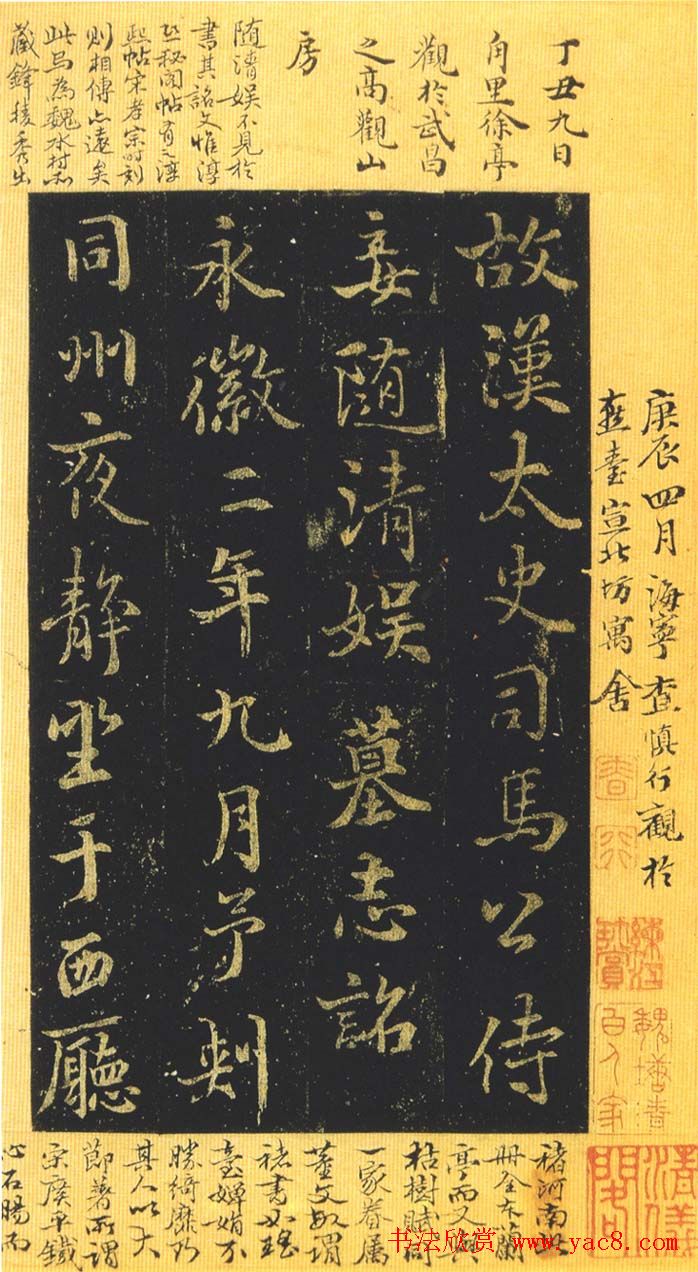 丁丑九日
角里徐亭
觀於武昌
之高觀山
房
随清娱不見於
書其誌文惟淳
熙秘閣帖有之淳
熙帖宋孝宗時刻
則相傳亦遠矣
此馬為魏水村
藏鋒棱秀出
故漢太史司馬公侍
妾随清娱墓志銘
永徽二年九月予刺
同州夜静坐于西廳
庚辰四月海寧查慎行觀於
燕臺宣北坊寓舍
褚河南此
冊全本蘭
亭而又與
枯樹賦同
一家眷屬
董文敏謂
褚書如瑶
臺嬋娟不
勝綺靡乃
其人以大
節著所謂
宋廣平鐵
心石腸而
书法欣赏 www.yac8.com